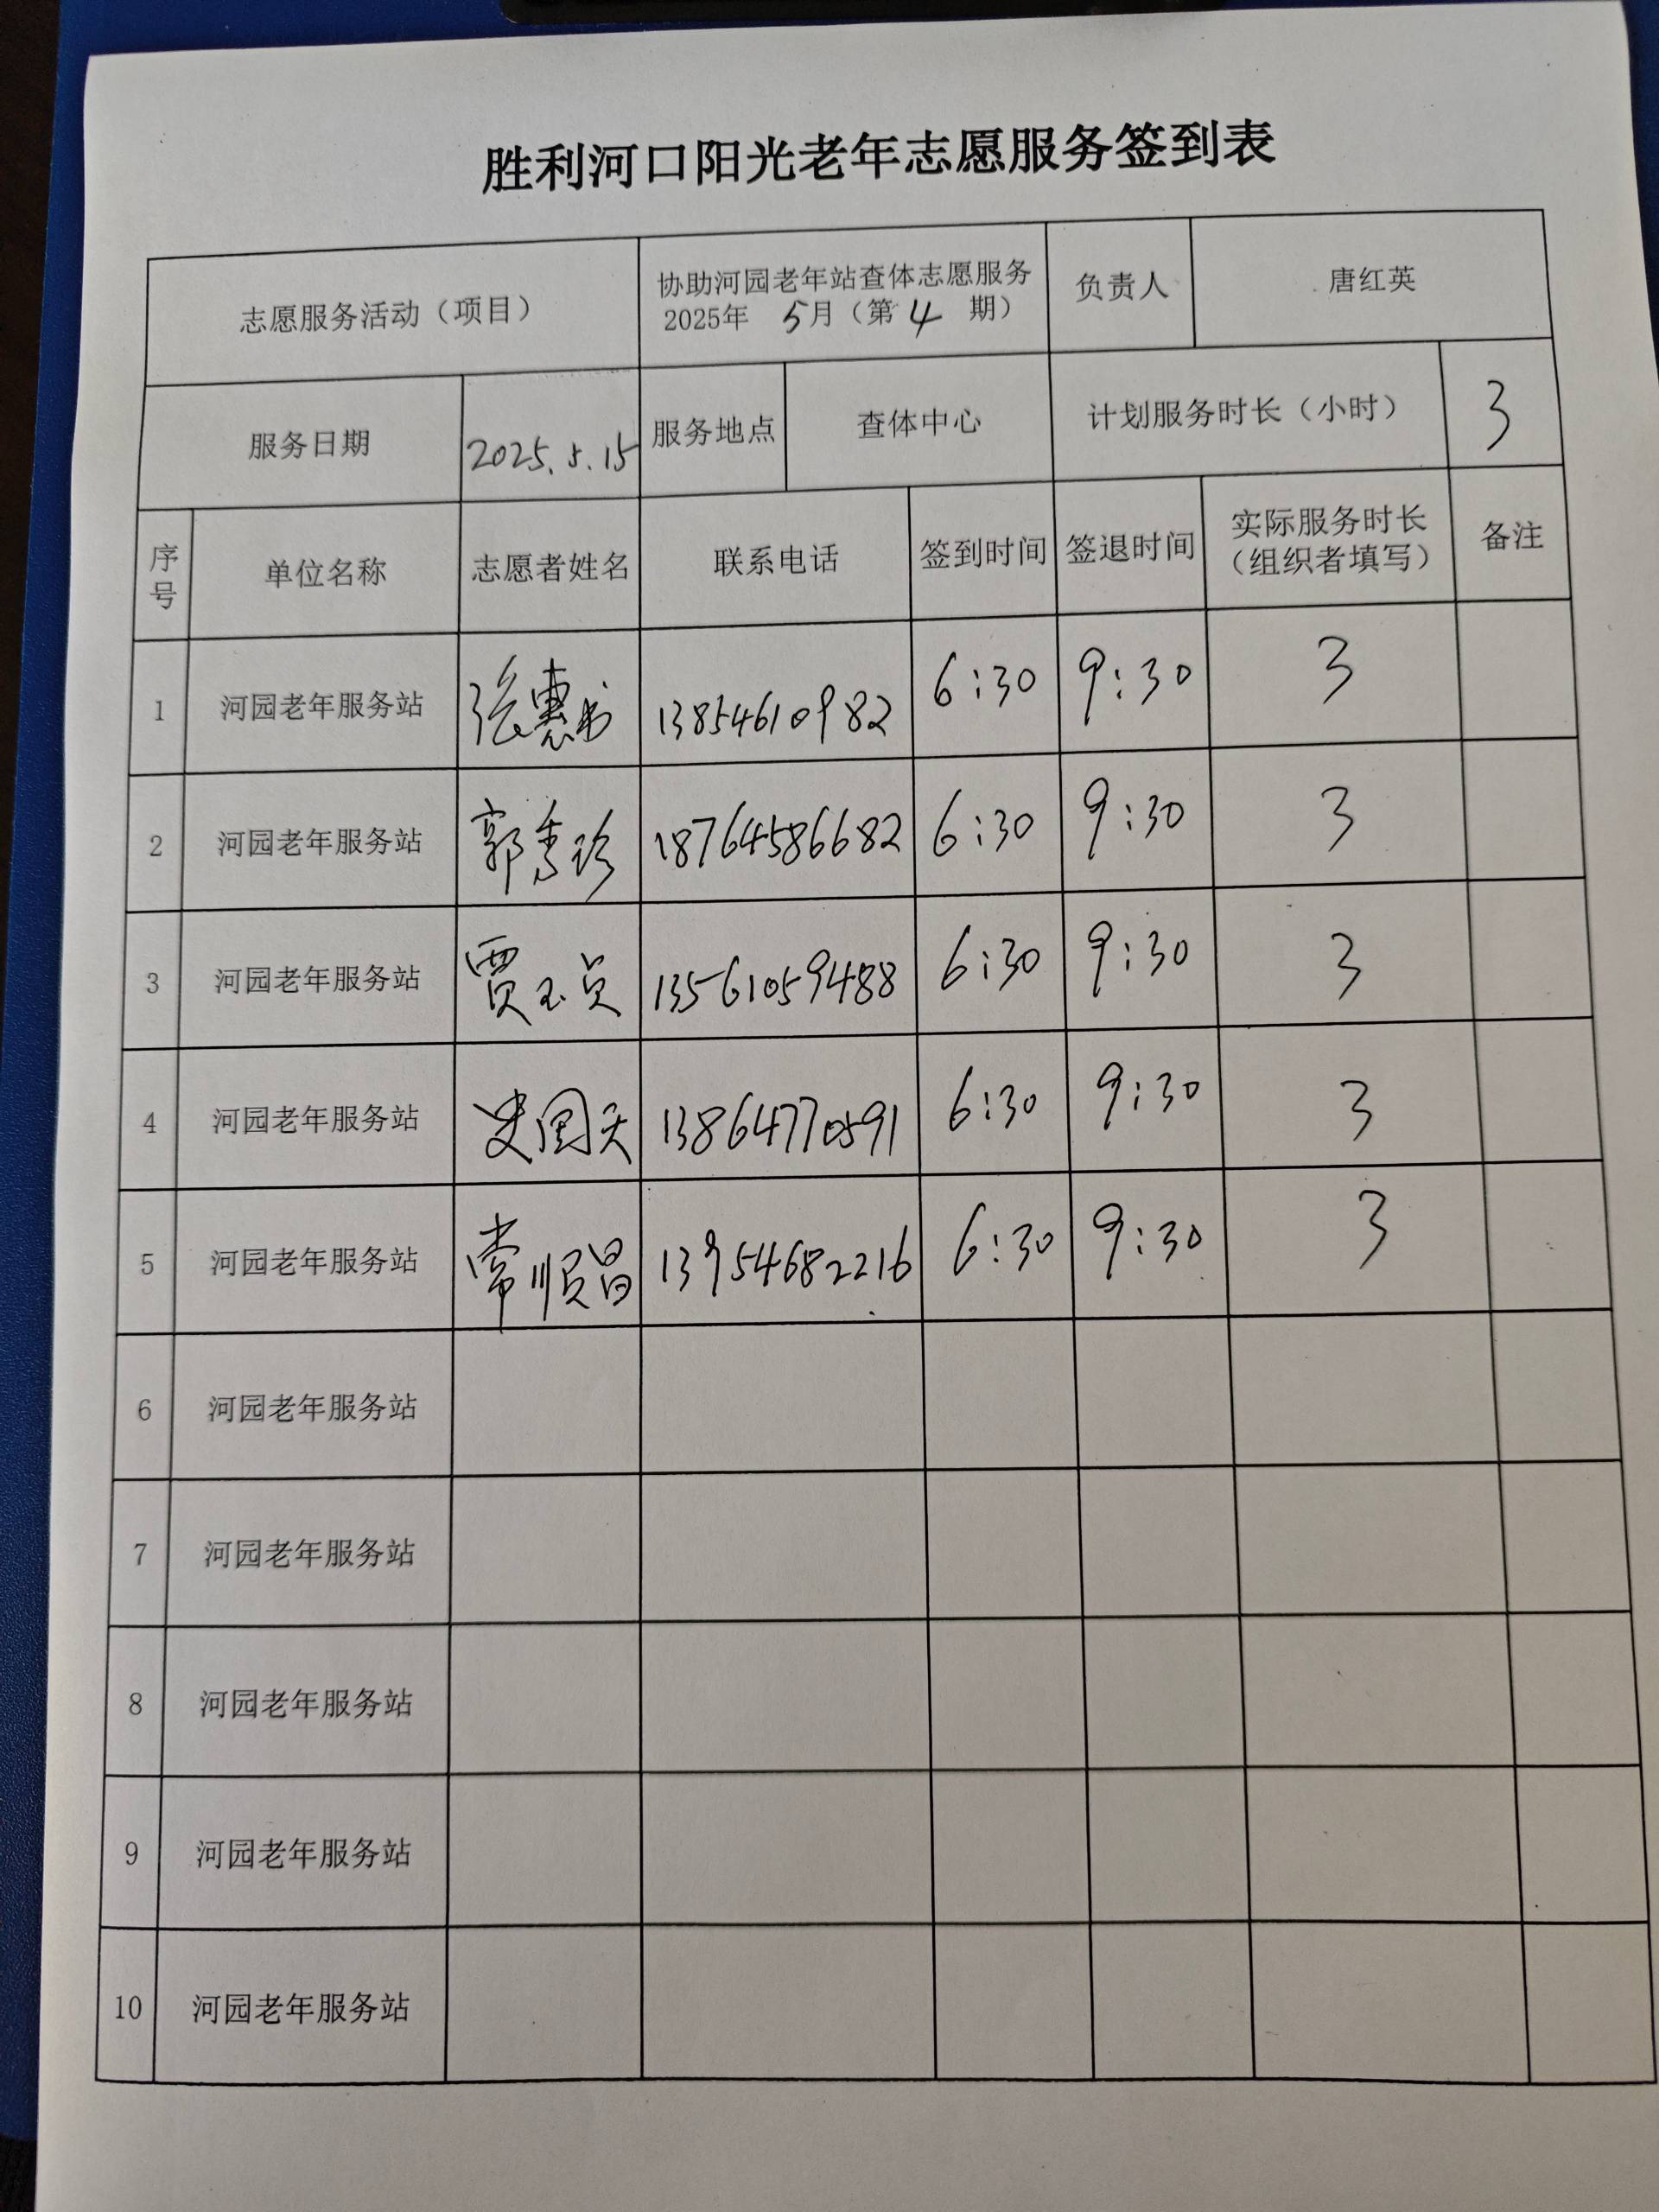 胜利河口阳光老年志愿服务签到表
志愿服务活动（项目） 协助河园老年站查体志愿服务 负责人 唐红英
2025年 5月（第 4 期）
服务日期 2025.5.15 服务地点 查体中心 计划服务时长（小时） 3
序号 单位名称 志愿者姓名 联系电话 签到时间 签退时间 实际服务时长（组织者填写） 备注
1 河园老年服务站 张惠书 13854610982 6:30 9:30 3
2 河园老年服务站 郭秀珍 18764586682 6:30 9:30 3
3 河园老年服务站 贾玉贞 13561059488 6:30 9:30 3
4 河园老年服务站 史国天 13864770591 6:30 9:30 3
5 河园老年服务站 常顺昌 13954682216 6:30 9:30 3
6 河园老年服务站
7 河园老年服务站
8 河园老年服务站
9 河园老年服务站
10 河园老年服务站